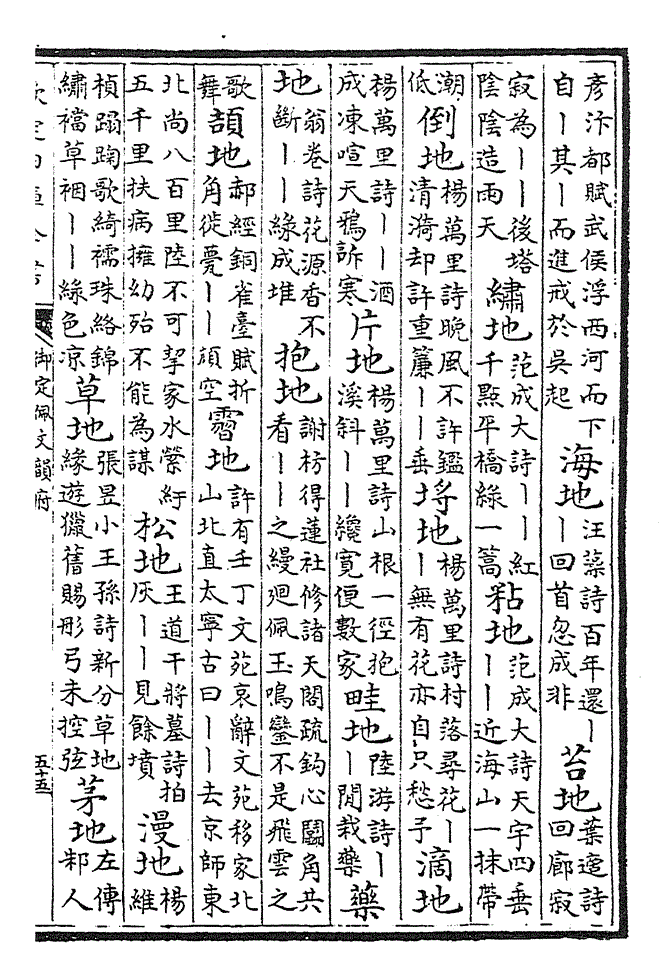 彥汴都賦武侯浮西河而下
自丨其丨而進戒於吳起
海地
汪藻詩百年還丨
丨回首忽成非
苔地
葉適詩
回廊寂
寂為丨丨後塔
陰陰造雨天
繡地
范成大詩丨丨紅
千點平橋綠一篙
粘地
范成大詩天字四垂
丨丨近海山一抹帶
潮
低
倒地
楊萬里詩晚風不許鑑
清漪却許重簾丨丨垂
特地
楊萬里詩村落尋花丨
丨無有花亦自只愁子
滴地
楊萬里詩丨丨酒
成凍喧天鴉訴寒
片地
楊萬里詩山根一徑抱
溪斜丨丨纔寛便數家
畦地
陸游詩丨
丨閒栽藥
藥
地
翁卷詩花源香不
斷丨丨綠成堆
抱地
謝枋得蓮社修諸天閣疏鈎心鬭角共
看丨丨之縵廻佩玉鳴鑾不是飛雲之
歌
舞
頡地
郝經銅雀臺賦折
角徙憂丨丨頑空
霫地
許有壬丁文苑哀辭文苑移家北
山北直太寧古曰丨丨去京師東
北尚八百里陸不可挈家水縈紆
五千里扶病擁幼殆不能為謀
松地
王道干將墓詩拍
灰丨丨見餘墳
漫地
楊
維
楨蹋踘歌綺襦珠絡錦
繡襠草裀丨丨綠色凉
草地
張昱小王孫詩新分草地
緣遊獵舊賜彤弓未控弦
茅地
左傳
邾人
御定佩文韻府
五十五